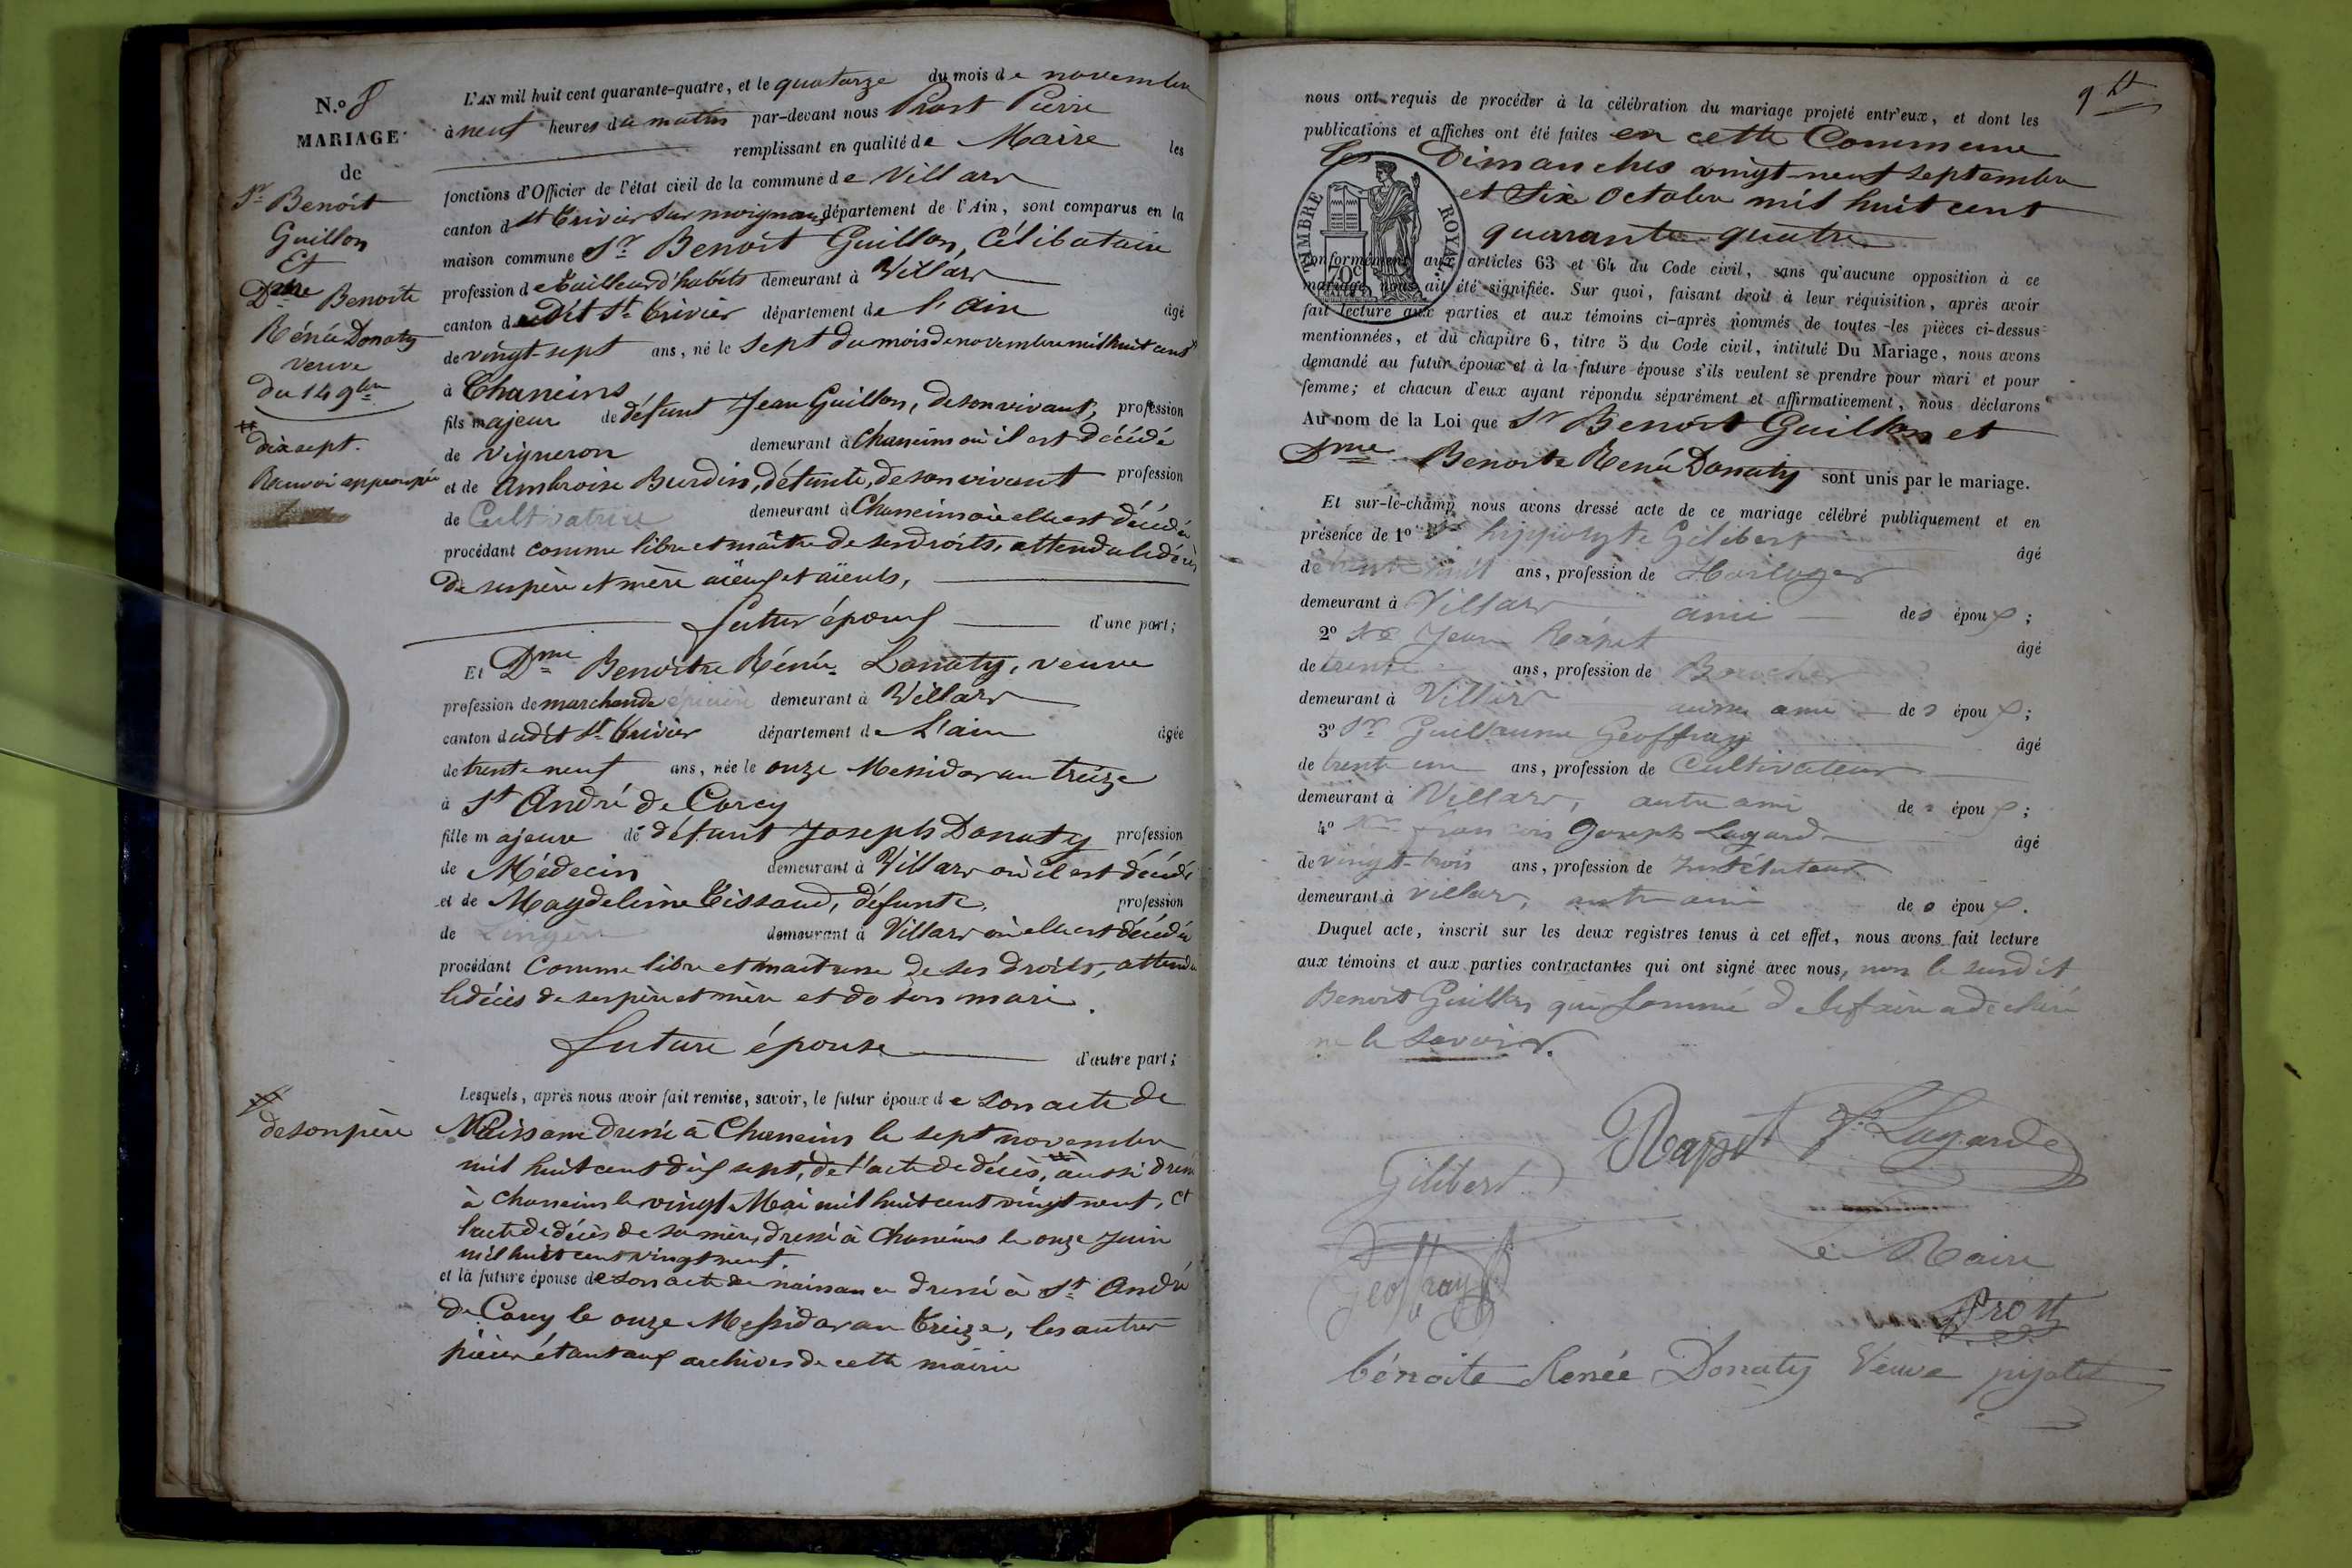 N.o 8
MARIAGE
de
Sr Benoit
Guillon
Et
Dme Benoite
Rénée Donaty
veuve
du 14 9bre
dix sept.
Renvoi approuvé
L'AN mil huit cent quarante-quatre, et le quatorze du mois de novembre
à neuf heures du matin par-devant nous Prost Pierre
remplissant en qualité de Maire les
fonctions d'Officier de l'état civil de la commune de Villars
canton d St Trivier sur moignans département de l'Ain, sont comparus en la
maison commune Sr Benoit Guillon, Célibataire
profession de tailleur d'habits demeurant à Villars
canton dudit St Trivier département de l'ain âgé
de vingt-sept ans, né le sept du mois de novembre mil huit cent
à Chaneins
fils majeur de défunt Jean Guillon, de son vivant, profession
de vigneron demeurant à Chaneins où il est décédé
et de Ambroise Burdin, défunte, de son vivant profession
de Cultivatrice demeurant à Chaneins où elle est décédée
procédant comme libre et maître de ses droits, attendu le décès
de ses père et mère aïeux et aïeuls,
futur époux d'une part;
Et Dme Benoite Rénée Donaty, veuve
profession de marchande épicière demeurant à Villars
canton dudit St Trivier département de L'ain âgée
de trente neuf ans, née le onze Messidor an treize
à St André de Corcy
fille majeure de défunt Joseph Donaty profession
de Médecin demeurant à Villars où il est décédé
et de Magdeleine Tissaud, défunte, profession
de Lingère demeurant à Villars où elle est décédée
procédant Comme libre et maitresse de ses droits, attendu
le décès de ses père et mère et de son mari.
future épouse d'autre part;
Lesquels, après nous avoir fait remise, savoir, le futur époux de son acte de
de son père
Naissance dressé à Chaneins le sept novembre
mil huit cent dix sept, de l'acte de décès, aussi dressé
à Chaneins le vingt Mai mil huit cent vingt neuf, et
l'acte de décès de sa mère, dressé à Chaneins le onze Juin
mil huit cent vingt neuf.
et la future épouse de son acte de naissance dressé à St André
de Corcy le onze Messidor an treize, les autres
pièces étant aux archives de cette mairie
nous ont requis de procéder à la célébration du mariage projeté entr'eux, et dont les
publications et affiches ont été faites en cette Commune
les Dimanches vingt-neuf septembre
et Six Octobre mil huit cent
quarante quatre
TIMBRE ROYAL
70c
conformément aux articles 63 et 64 du Code civil, sans qu'aucune opposition à ce
mariage nous ait été signifiée. Sur quoi, faisant droit à leur réquisition, après avoir
fait lecture aux parties et aux témoins ci-après nommés de toutes les pièces ci-dessus
mentionnées, et du chapitre 6, titre 5 du Code civil, intitulé Du Mariage, nous avons
demandé au futur époux et à la future épouse s'ils veulent se prendre pour mari et pour
femme; et chacun d'eux ayant répondu séparément et affirmativement, nous déclarons
Au nom de la Loi que Sr Benoit Guillon et
Dme Benoite Renée Donaty sont unis par le mariage.
Et sur-le-champ nous avons dressé acte de ce mariage célébré publiquement et en
présence de 1o hippolyte Gilibert âgé
de ans, profession de Horloger
demeurant à Villars ami des époux;
2o Jean Rapet âgé
de trente ans, profession de Boucher
demeurant à Villars ami des époux;
3o Sr Guillaume Geoffray âgé
de trente un ans, profession de Cultivateur
demeurant à Villars, autre ami des époux;
4o françois Joseph Lagarde âgé
de vingt-trois ans, profession de Instituteur
demeurant à villars, autre ami des époux.
Duquel acte, inscrit sur les deux registres tenus à cet effet, nous avons fait lecture
aux témoins et aux parties contractantes qui ont signé avec nous, non le susdit
Benoit Guillon qui sommé de le faire a déclaré
ne le savoir.
Rapet J. Lagarde
Gilibert
Geoffray
Le Maire
Prost
bénoite Renée Donaty Veuve pijolet